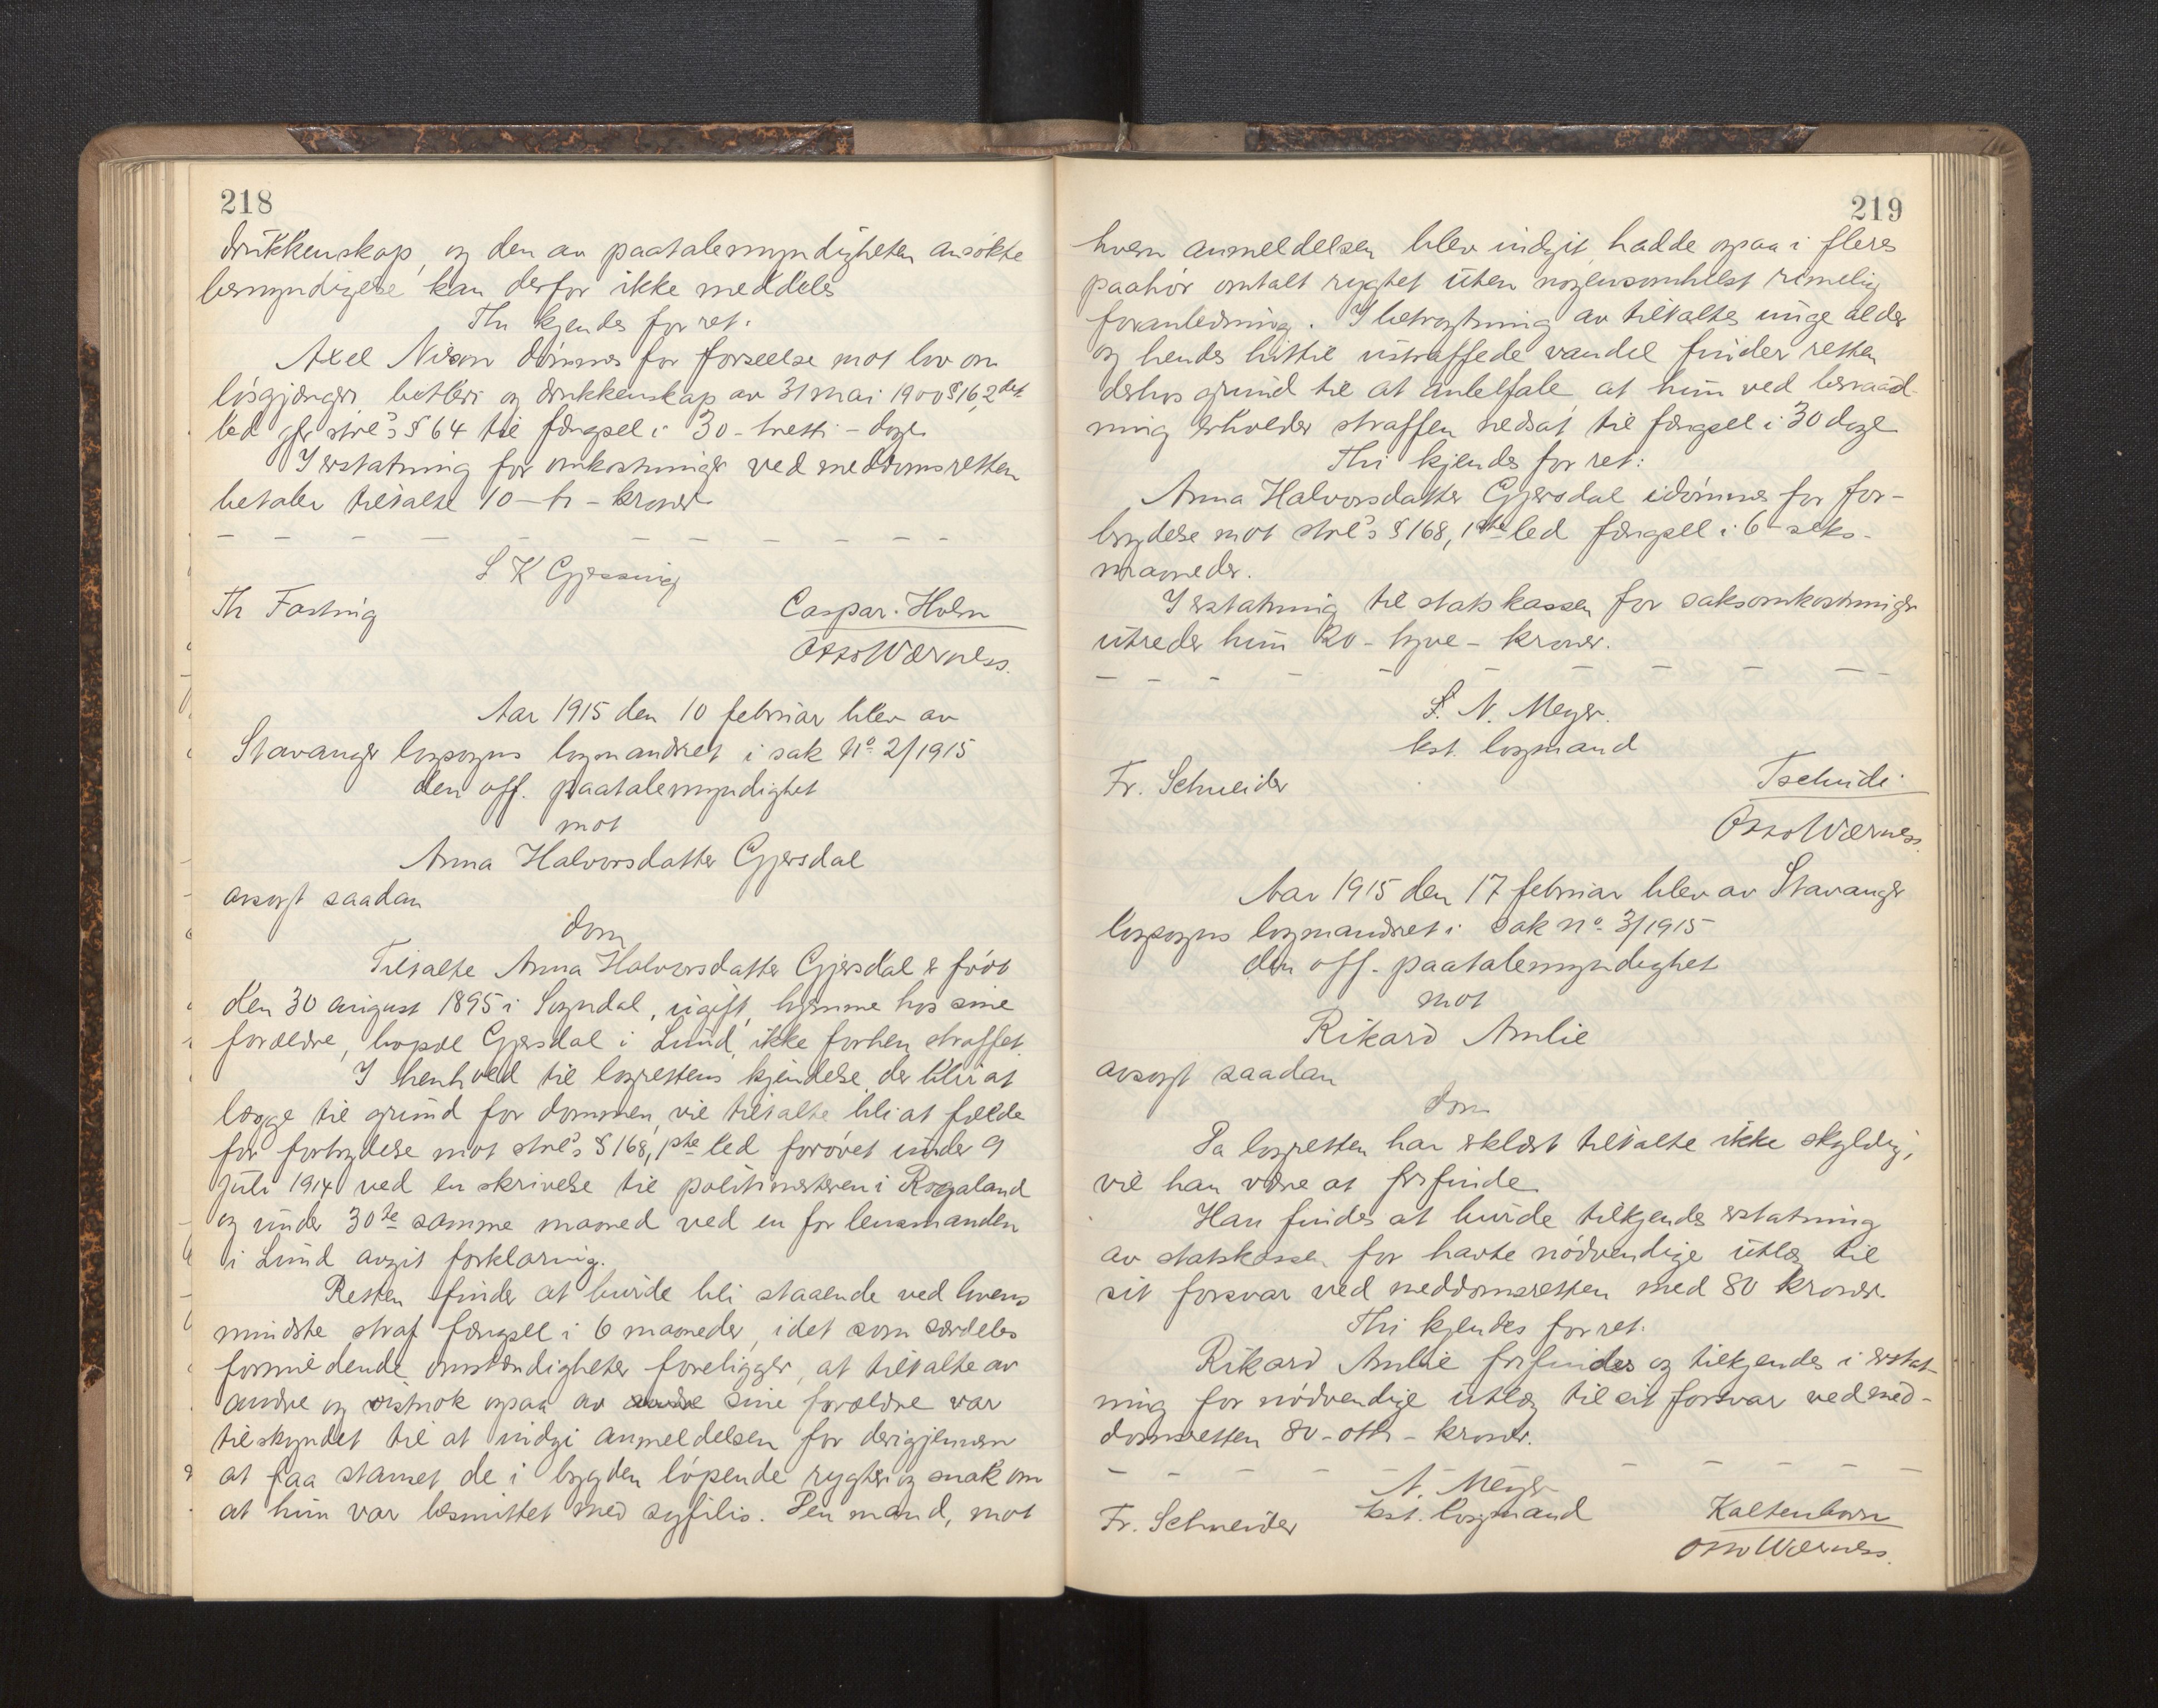 218
drukkenskap, og den av paatalemyndigheten ansökte
bemyndigelse kan derfor ikke meddeles
Thi kjendes for ret:
Axel Nilson dömmes for forseelse mot lov om
lösgjængeri, betleri og drukkenskap av 31 mai 1900 § 16, 2det
led jfr strl's § 64 til fængsel i 30 - tretti - dage.
I erstatning for omkostninger ved meddomsretten
betaler tiltalte 10 - ti - kroner
L K Gjessing
Th Fasting
Caspar. Holm
Otto Wærness.
Aar 1915 den 10 februar blev av
Stavanger lagsogns lagmandsret i sak No 2/1915
den off. paatalemyndighet
mot
Anna Halvorsdatter Gjersdal
avsagt saadan
dom
Tiltalte Anna Halvorsdatter Gjersdal er född
den 30 august 1895 i Sogndal, ugift, hjemme hos sine
forældre, bopæl Gjersdal i Lund, ikke forhen straffet.
I henhold til lagrettens kjendelse, der blir at
lægge til grund for dommen, vil tiltalte bli at fælde
for forbrydelse mot strl's § 168, 1ste led forövet under 9
juli 1914 ved en skrivelse til politimesteren i Rogaland
og under 30te samme maaned ved en for lensmanden
i Lund avgit forklaring.
Retten finder at burde bli staaende ved lovens
mindste straf fængsel i 6 maaneder, idet som særdeles
formildende omstændigheter foreligger, at tiltalte av
andre og vistnok ogsaa av andre sine forældre var
tilskyndet til at indgi anmeldelsen for derigjennem
at faa stanset de i bygden löpende rygter og snak om
at hun var besmittet med syfilis. Den mand, mot
219
hvem anmeldelsen blev indgit, hadde ogsaa i fleres
paahör omtalt rygtet uten nogensomhelst rimelig
foranledning. I betragtning av tiltaltes unge alder
og hendes hittil ustraffede vandel finder retten
derhos grund til at anbefale at hun ved benaad-
ning erholder straffen nedsat til fængsel i 30 dage
Thi kjendes for ret:
Anna Halvorsdatter Gjersdal idömmes for for-
brydelse mot strl's § 168, 1ste led fængsel i 6 - seks -
maaneder.
I erstatning til statskassen for saksomkostninger
utreder hun 20 - tyve - kroner.
L. N. Meyer.
kst. lagmand
Fr. Schneider
Tschudi
Otto Wærness.
Aar 1915 den 17 februar blev av Stavanger
lagsogns lagmandsret i sak no 3/1915
den off. paatalemyndighet
mot
Rikard Amlie
avsagt saadan
dom
Da lagretten har erklært tiltalte ikke skyldig,
vil han være at frifinde.
Han findes at burde tilkjendes erstatning
av statskassen for havte nödvendige utlæg til
sit forsvar ved meddomsretten med 80 kroner.
Thi kjendes for ret:
Rikard Amlie frifindes og tilkjendes i erstat-
ning for nödvendige utlæg til sit forsvar ved med-
domsretten 80 - otti - kroner.
N. Meyer
kst. lagmand
Fr. Schneider
Kaltenborn
Otto Wærness.